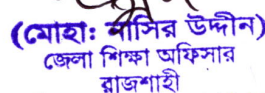 (মোহাঃ নাসির উদ্দীন)
জেলা শিক্ষা অফিসার
রাজশাহী